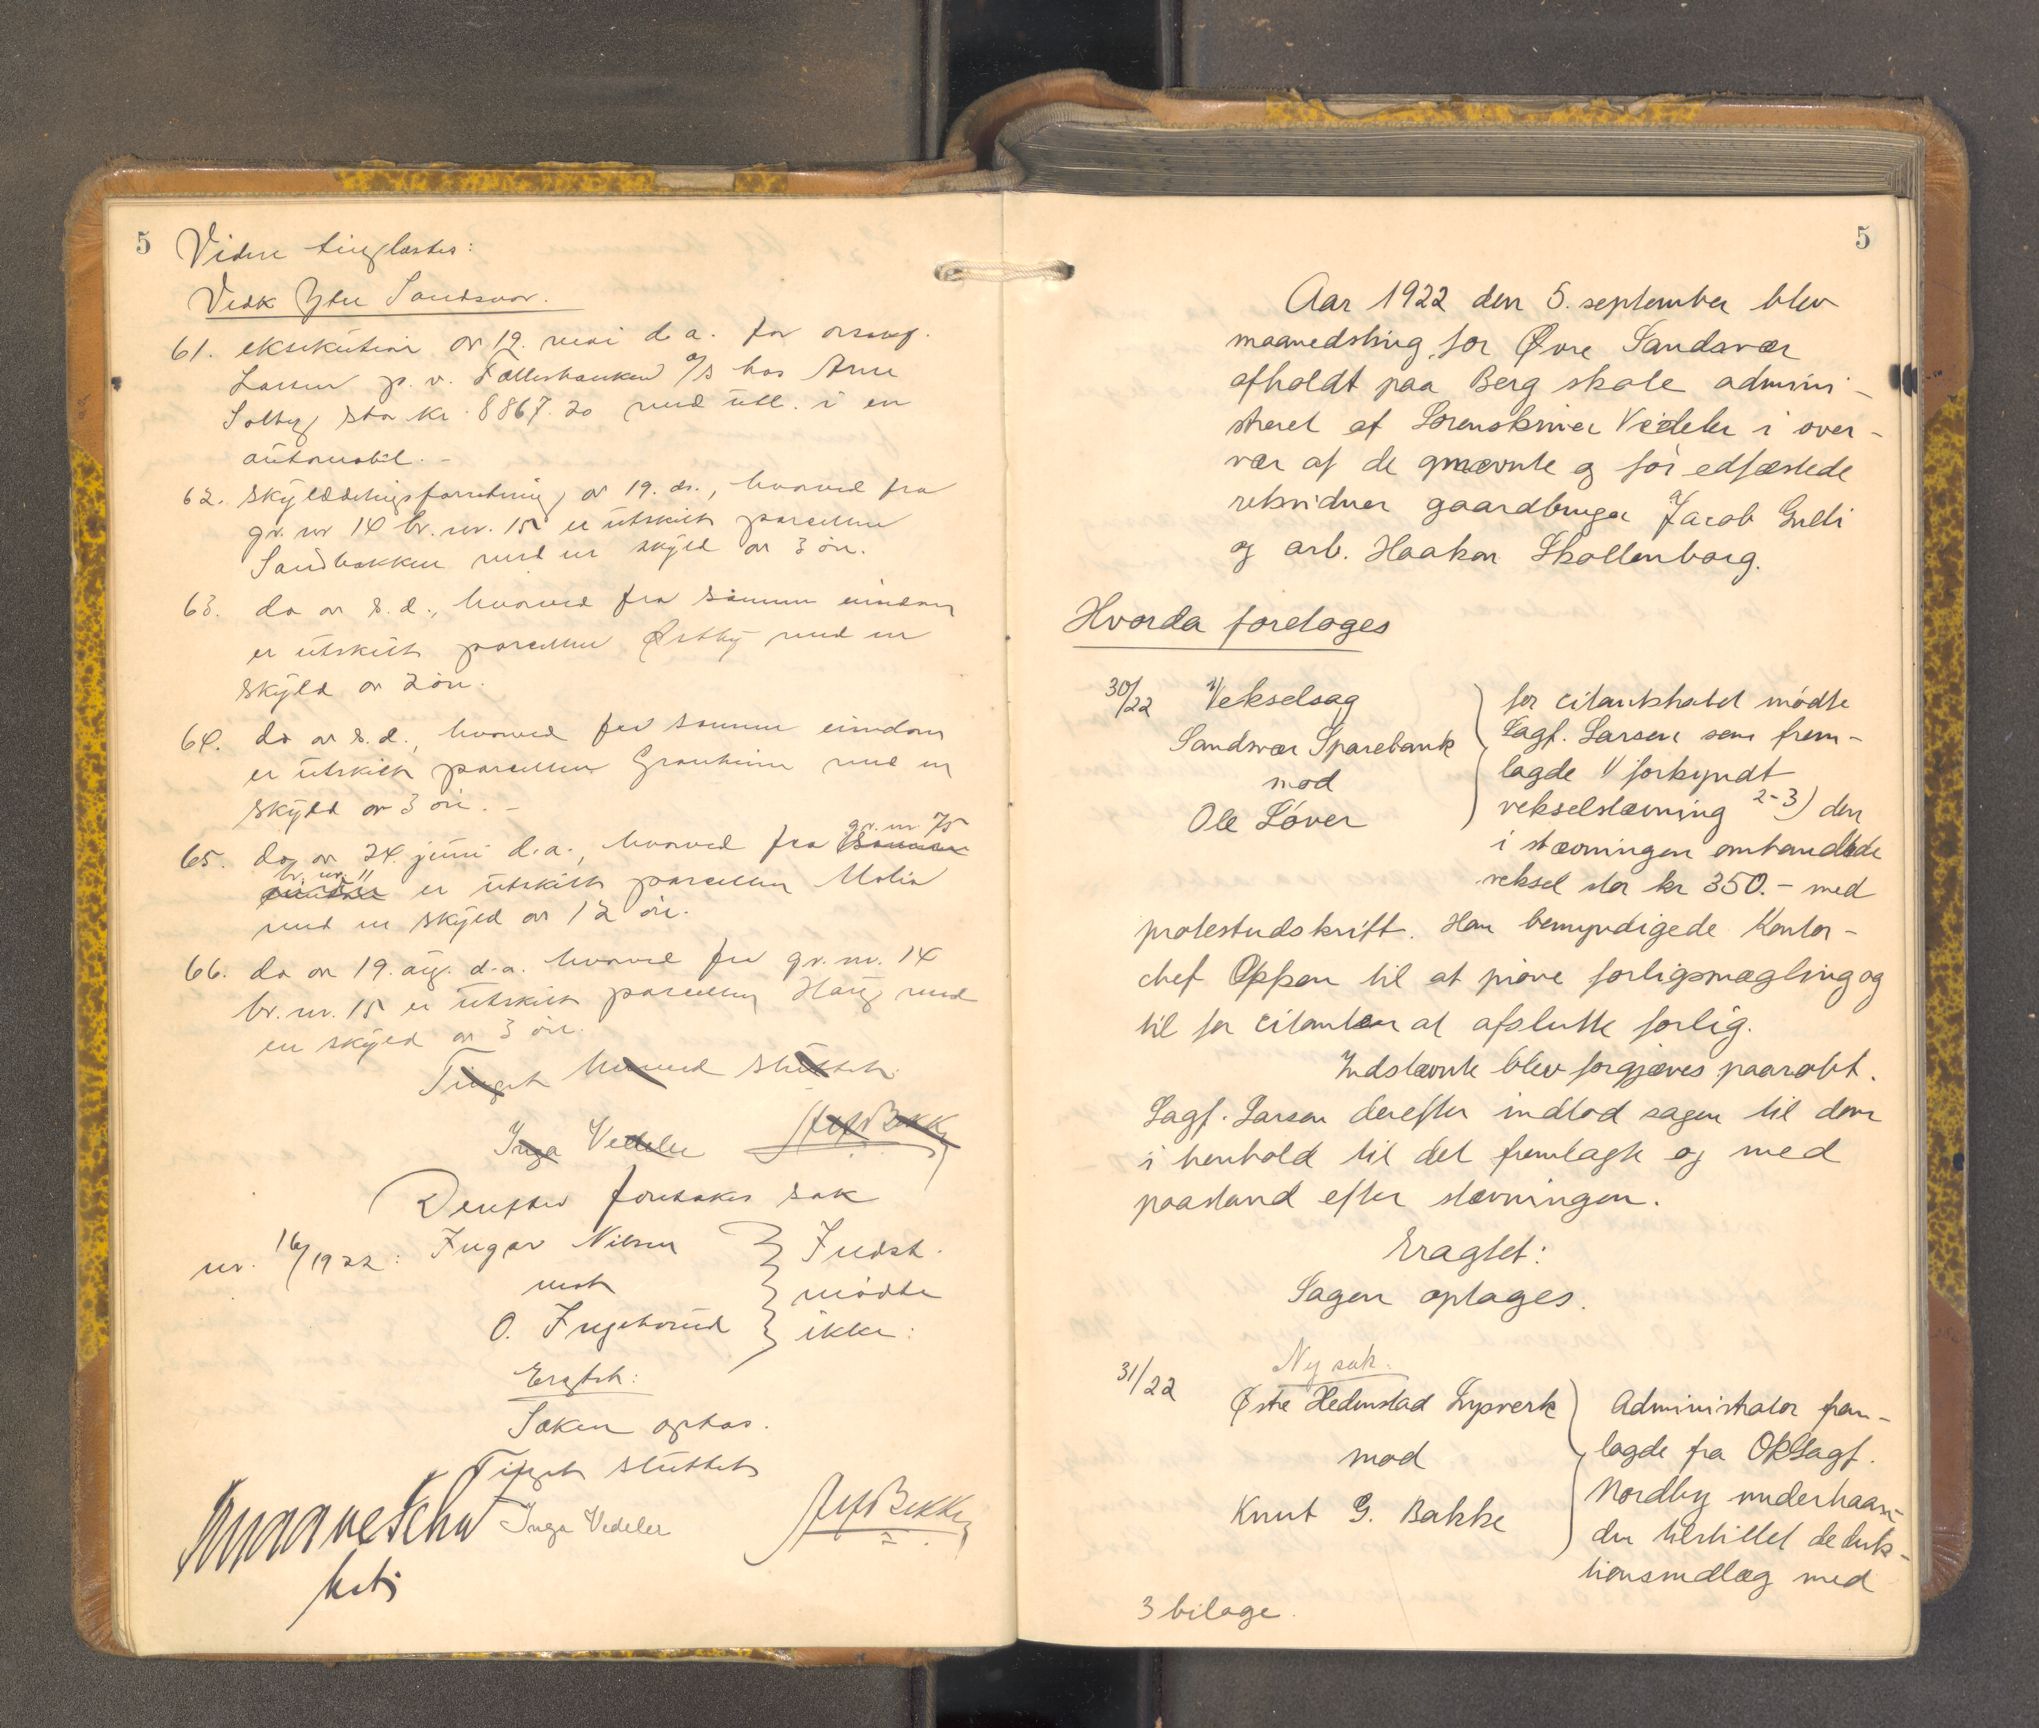 5
Videre tinglæstes:
Vedk Ytre Sandsvær.
61. eksekution av 12. mai d.a. for orsakf.
Larsen p. v. Fællesbanken A/S hos Arne
Solberg stor kr. 8867.20 med utl. i en
automobil. -
62. skylddelingsforretning av 19. ds., hvorved fra
gr. nr 14 br. nr. 15 er utskilt parcellen
Sandbakken med en skyld av 3 øre.
63. do av s.d., hvorved fra samme eiendom
er utskilt parcellen Østby med en
skyld av 2 øre.
64. do av s.d., hvorved fra samme eiendom
er utskilt parcellen Granheim med en
skyld av 3 øre. -
gr. nr 75
65. do av 24. juni d.a., hvorved fra samme
br. nr. 11
eiendom er utskilt parcellen Molia
med en skyld av 12 øre.
66. do av 19. aug. d.a. hvorved fra gr. nr. 14
br. nr. 15 er utskilt parcellen Haug med
en skyld av 3 øre.
Tinget hermed sluttet.
Inga Vedeler
Derefter foretokes sak
nr. 16/1922: Ingar Nilsen Indst.
mot mødte
O. Ingeborud ikke:
Eragtet:
Saken optas.
Tinget sluttet
Inga Vedeler
5
Aar 1922 den 5. september blev
maanedsting for Øvre Sandsvær
afholdt paa Berg skole admini-
streret af Sorenskriver Vedeler i over-
vær af de opnævnte og før edfæstede
retsvidner gaardbruger Jacob Gulli
og arb. Haakon Skollenborg.
Hvorda foretoges
30/22 1/ Vekselsag for citantskabet mødte
Sandsvær Sparebank Sagf. Larsen som frem-
mod lagde 1/ forkyndt
Ole Løver vekselstævning 2-3) den
i stævningen omhandlede
veksel stor kr 350.- med
protestudskrift. Han bemyndigede Kontor-
chef Oppen til at prøve forligsmægling og
til for citanten at afslutte forlig.
Indstævnte blev forgjæves paaropt.
Sagf. Larsen derefter indlod sagen til dom
i henhold til det fremlagte og med
paastand efter stævningen.
Eragtet:
Sagen optages.
Ny sak.
31/22 Østre Hedenstad Lysverk Administrator frem-
mod lagde fra ORSagf.
Knut G. Bakke Nordby underhaan-
den tilstillet deduk-
tionsindlæg med
3 bilage.